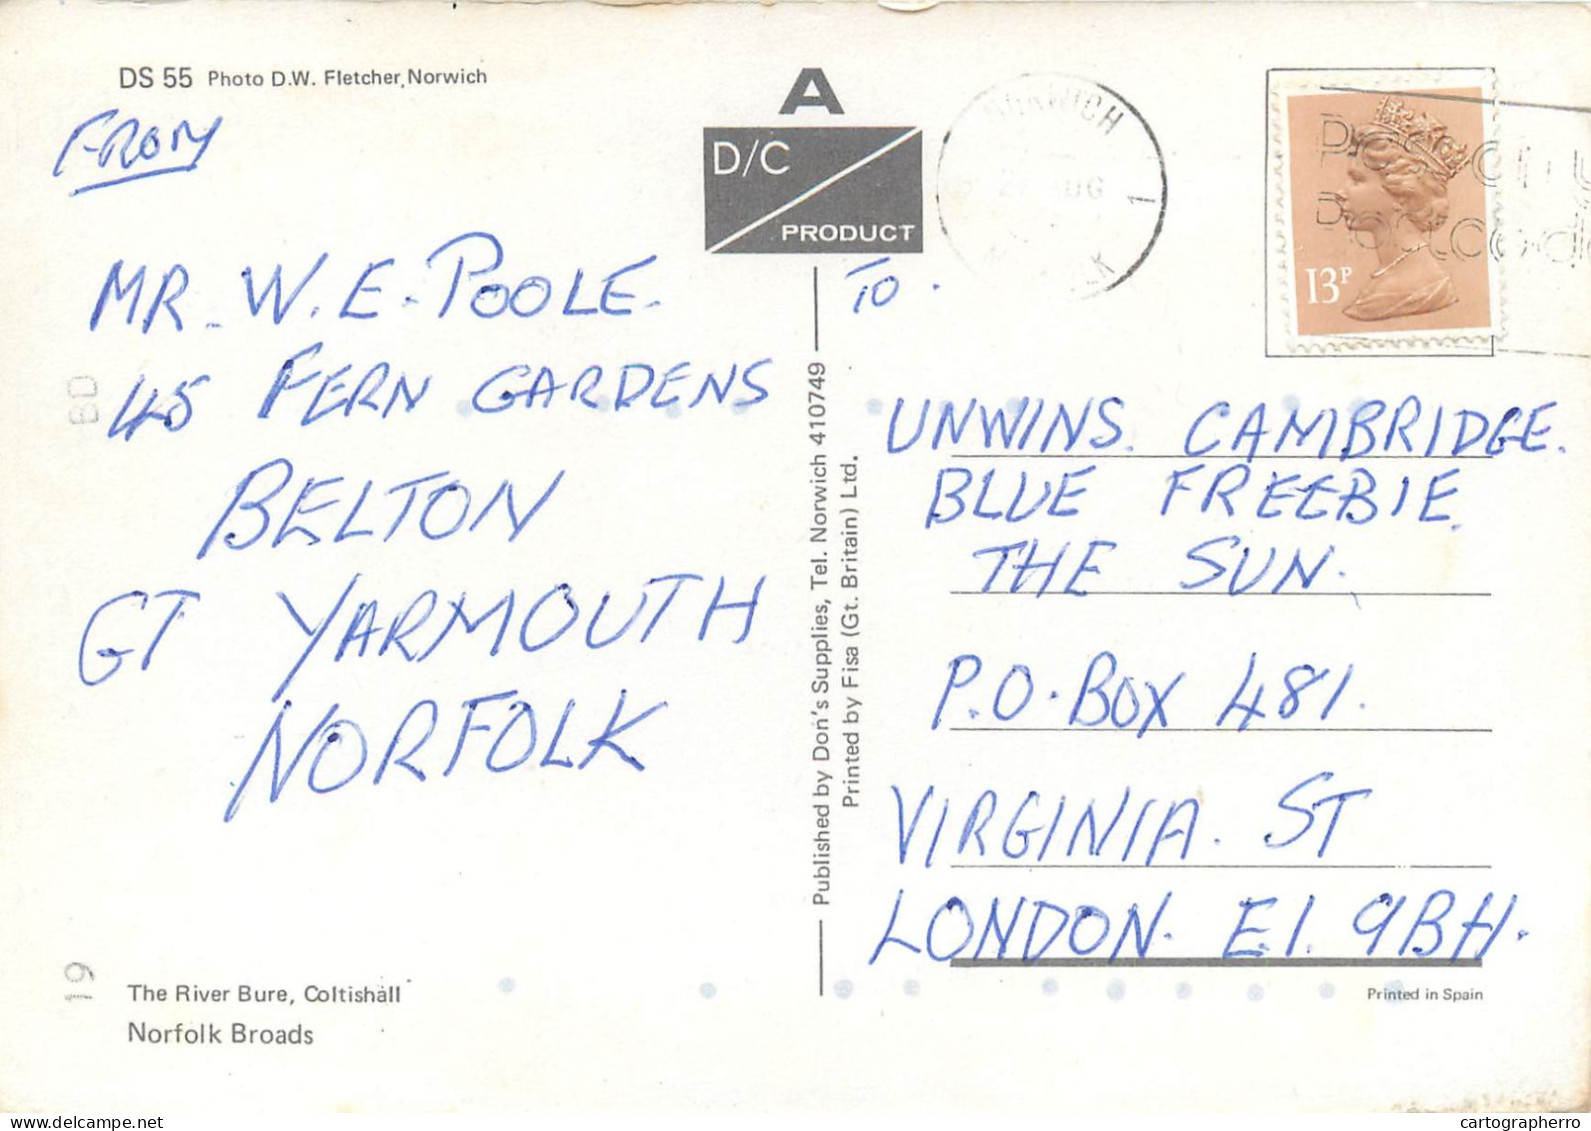 DS 55 Photo D.W. Fletcher, Norwich
FROM
MR. W. E. POOLE.
45 FERN GARDENS
BELTON
GT YARMOUTH
NORFOLK
The River Bure, Coltishall
Norfolk Broads
BD
19
A
D/C
PRODUCT
Published by Don's Supplies, Tel. Norwich 410749
Printed by Fisa (Gt. Britain) Ltd.
NORWICH
AUG
1
13P
TO.
UNWINS. CAMBRIDGE.
BLUE FREEBIE.
THE SUN.
P.O. BOX 481.
VIRGINIA. ST
LONDON. E.1. 9BH.
Printed in Spain
delcampe.net
cartographerro